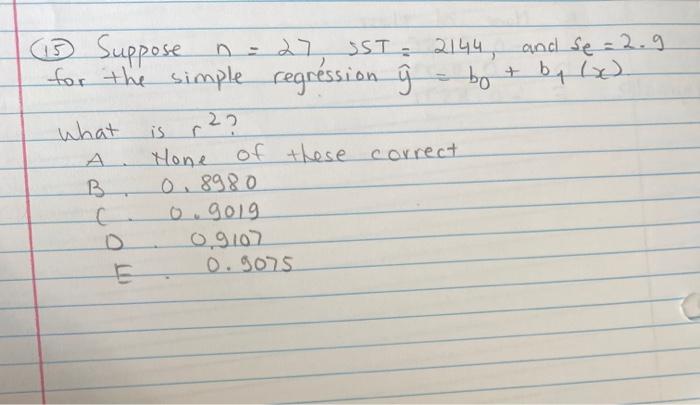 (15) Suppose n = 27, SST = 2144, and Se = 2.9
for the simple regression ŷ = b0 + b1 (x)
What is r²?
A. None of these correct
B. 0.8980
C. 0.9019
D. 0.9107
E. 0.9075